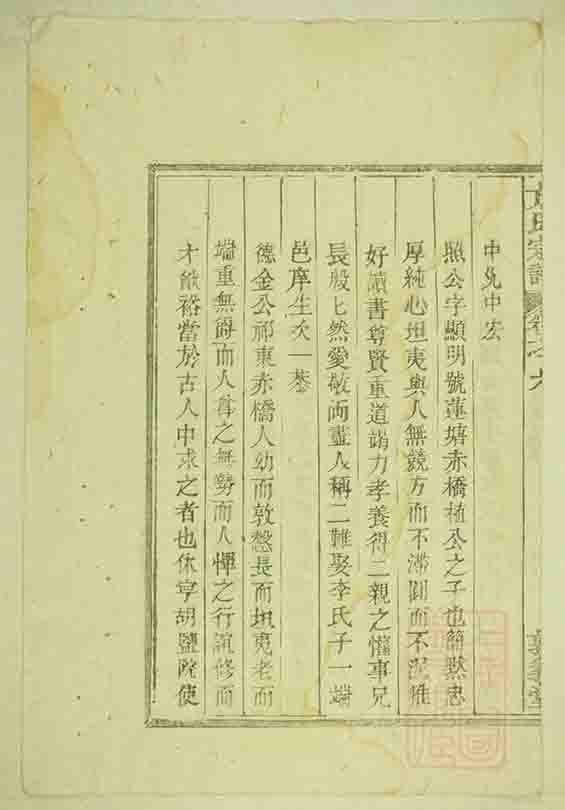 氏宗譜 卷之六
中允中宏
照公字顯明號蓮塘赤橋植公之子也簡默忠
厚純心坦夷與人無競方而不滯圓而不流雅
好讀書尊賢重道竭力孝養得二親之懽事兄
長殷匕然愛敬兩盡人稱二難娶李氏子一端
邑庠生次一恭
德金公祁東赤橋人幼而敦慤長而坦夷老而
端重無爵而人尊之無勢而人憚之行訊修而
才猷裕當於古人中求之者也休寧胡鹽院使